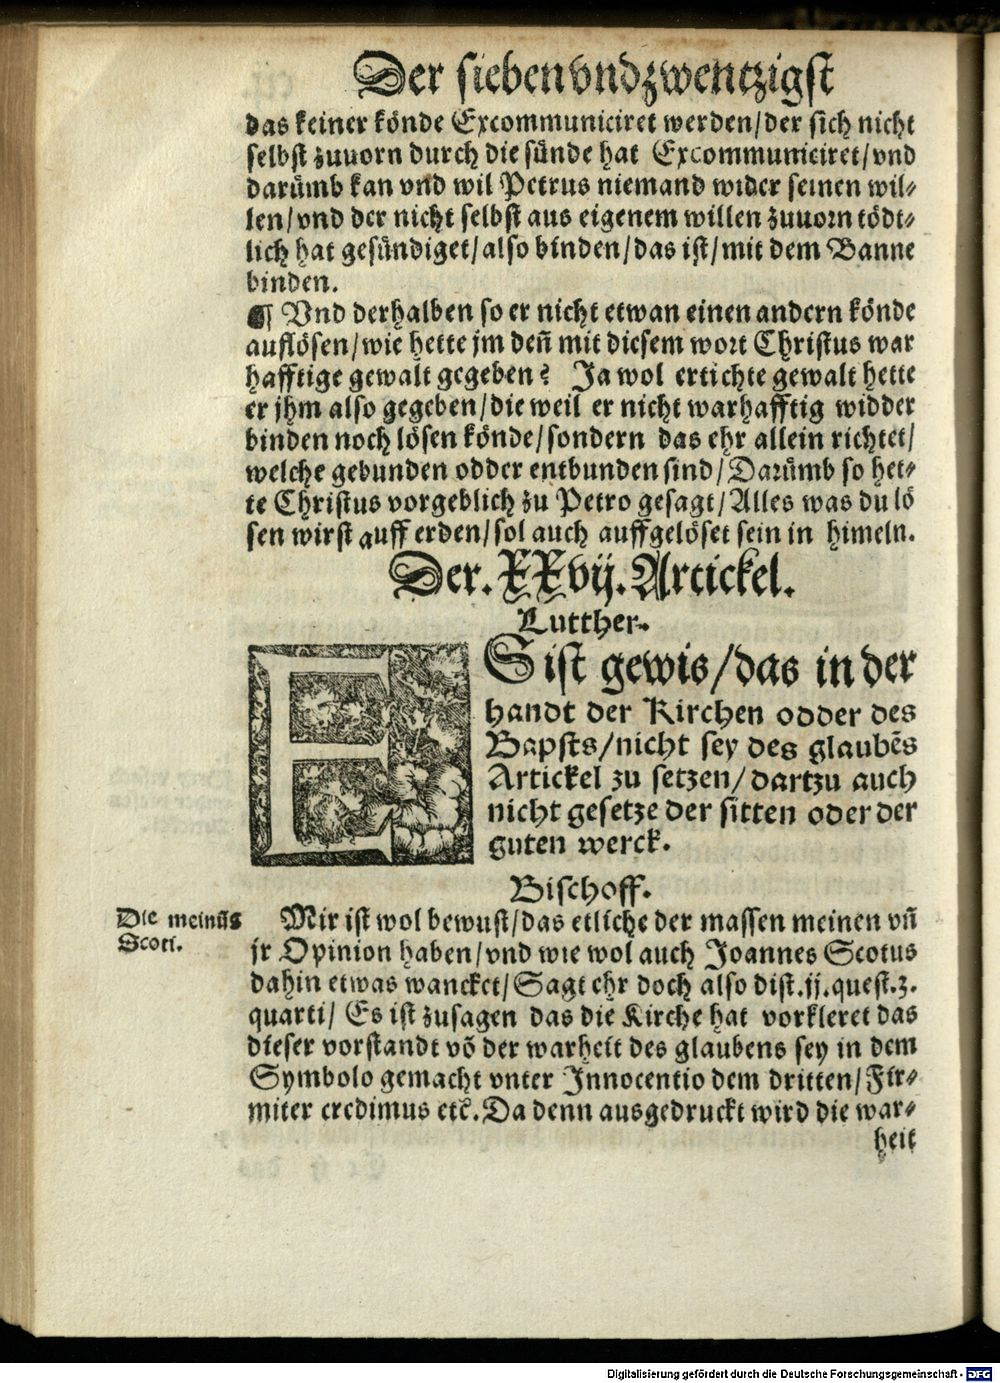 Der siebenvndzwentzigst
das keiner könde Excommuniciret werden/der sich nicht
selbst zuuorn durch die sünde hat Excommuniciret/vnd
darümb kan vnd wil Petrus niemand wider seinen wil⸗
len/vnd der nicht selbst aus eigenem willen zuuorn tödt⸗
lich hat gesündiget/also binden/das ist/mit dem Banne
binden.
¶ Vnd derhalben so er nicht etwan einen andern könde
auflösen/wie hette jm deñ mit diesem wort Christus war
hafftige gewalt gegeben? Ja wol ertichte gewalt hette
er jhm also gegeben/die weil er nicht warhafftig widder
binden noch lösen könde/sondern das ehr allein richtet/
welche gebunden odder entbunden sind/Darümb so het⸗
te Christus vorgeblich zu Petro gesagt/Alles was du lö
sen wirst auff erden/sol auch auffgelöset sein in himeln.
Der.XXvij.Artickel.
Lutther.
ES ist gewis/das in der
handt der Kirchen odder des
Bapsts/nicht sey des glaubẽs
Artickel zu setzen/dartzu auch
nicht gesetze der sitten oder der
guten werck.
Bischoff.
Die meinũg
Scoti.
Mir ist wol bewust/das etliche der massen meinen vñ
jr Opinion haben/vnd wie wol auch Joannes Scotus
dahin etwas wancket/Sagt ehr doch also dist.jj.quest.3.
quarti/ Es ist zusagen das die Kirche hat vorkleret das
dieser vorstandt võ der warheit des glaubens sey in dem
Symbolo gemacht vnter Innocentio dem dritten/Fir⸗
miter credimus etc̃.Da denn ausgedruckt wird die war⸗
heit
Digitalisierung gefördert durch die Deutsche Forschungsgemeinschaft - DFG